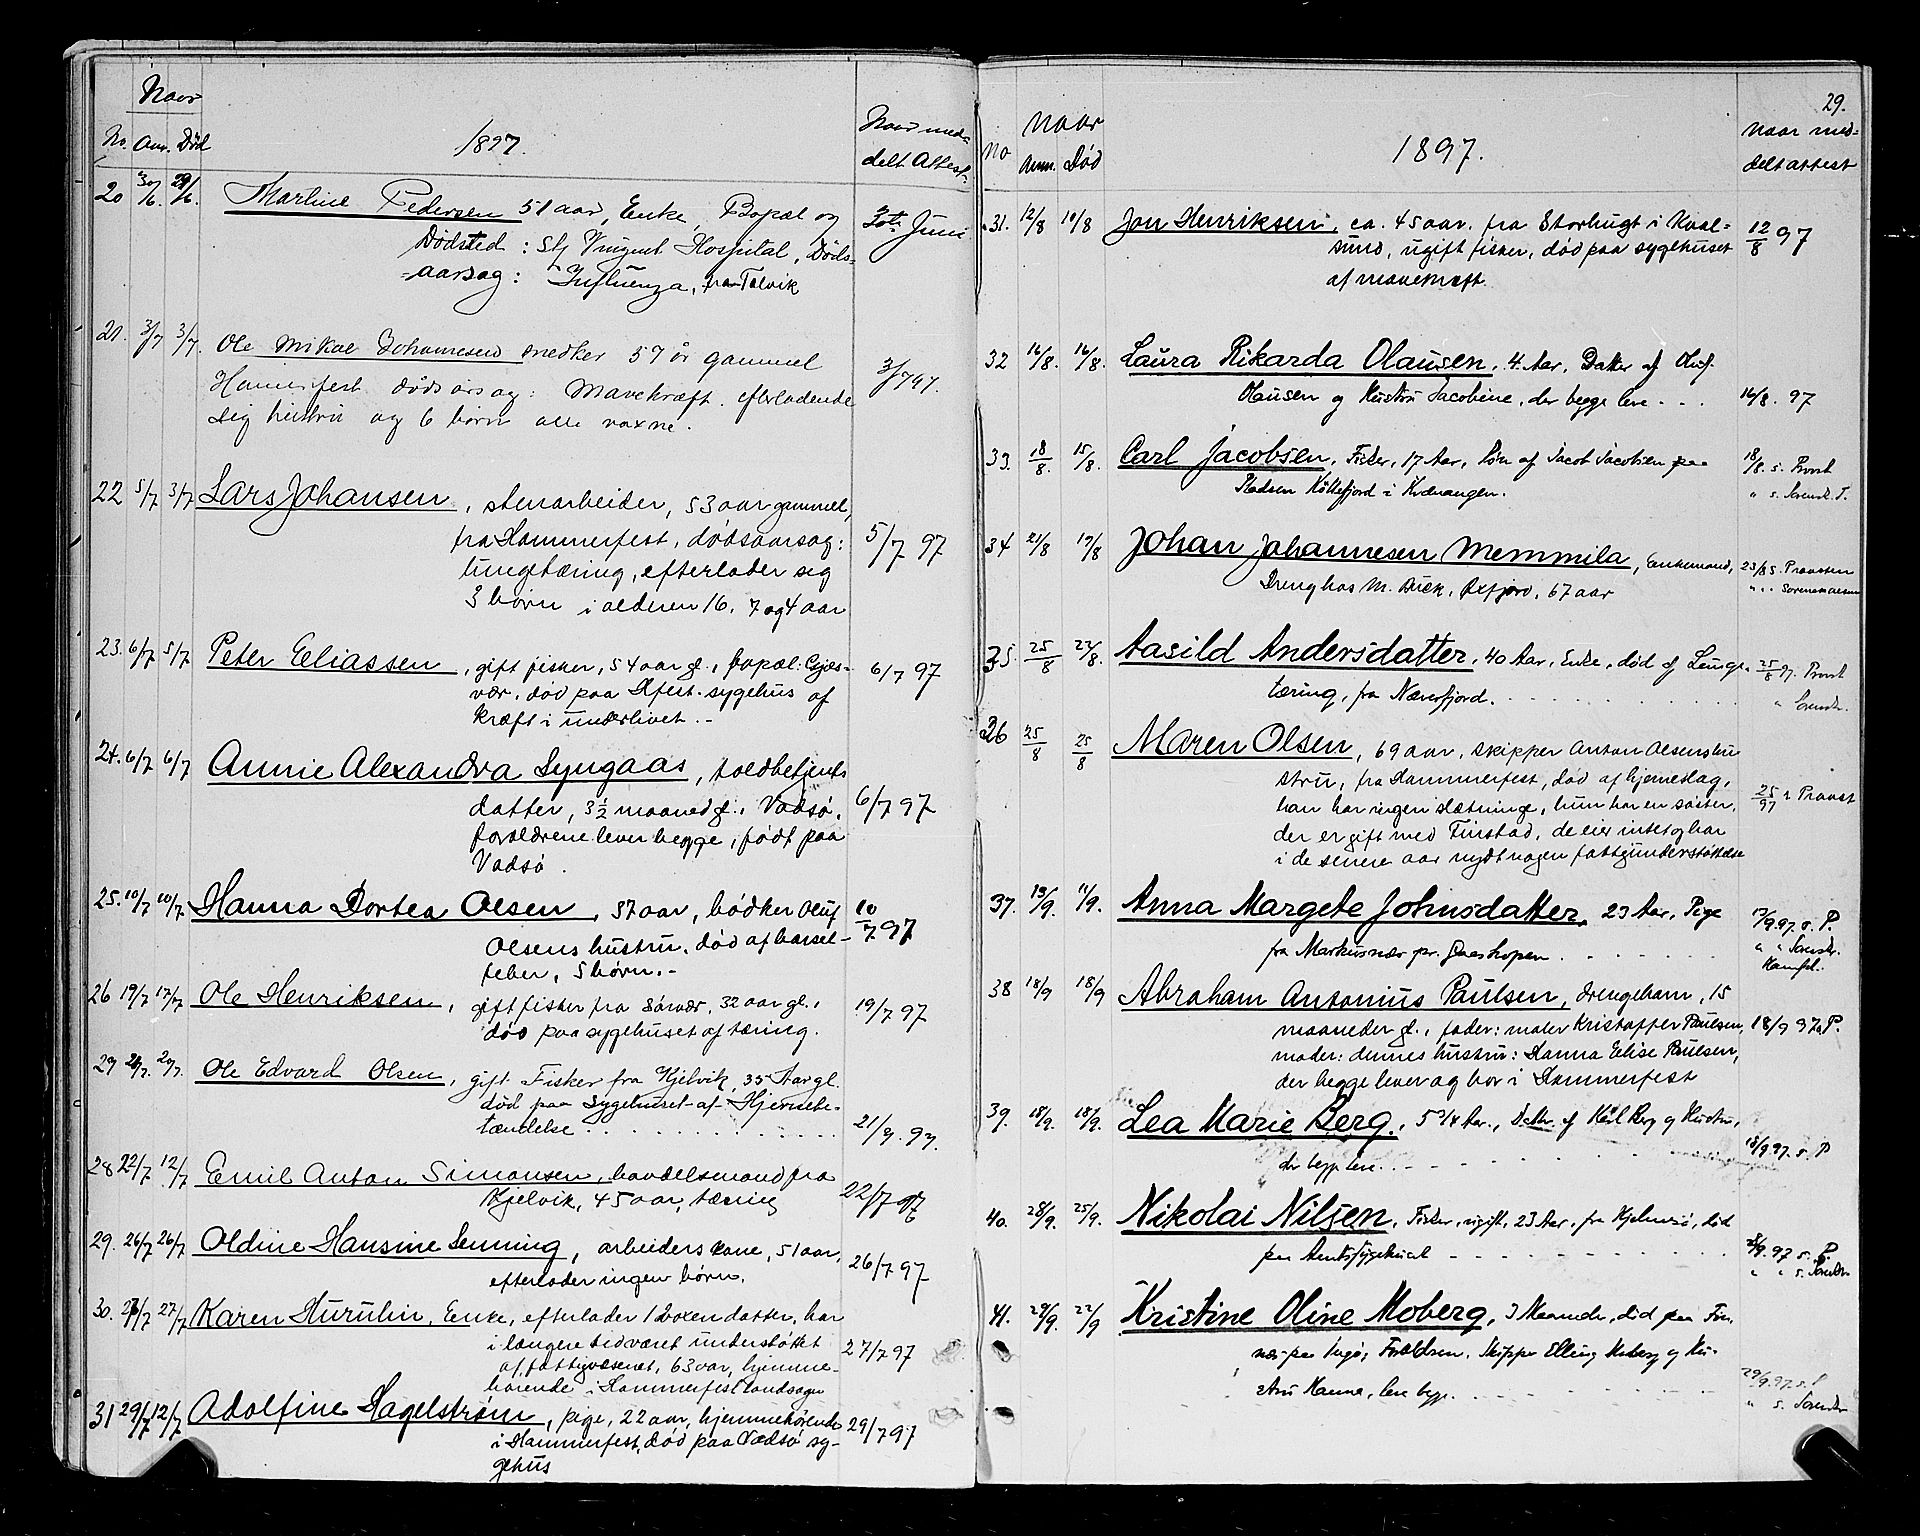 Naar
No. Anm. Død
1897.
Naar med-
delt Attest
20 30/6. 29/6. Martine Pedersen 51 aar, Enke, Bopæl og
Dødsted: St. Vincent Hospital, Døds-
aarsag: Influenza, fra Talvik
30te Juni
21. 3/7 3/7. Ole Mikal Johannesen snedker 57 år gammel
Hammerfest dødsårsag: Mavekræft. efterladende
sig hustru og 6 børn alle voxne.
3/7 97.
22 5/7 3/7 Lars Johansen, stenarbeider, 53 aar gammel,
fra Hammerfest, dødsaarsag:
lungetæring, efterlader sig
3 børn i alderen 16, 7 og 4 aar
5/7 97
23. 6/7 5/7 Peter Eliassen, gift fisker, 54 aar gl., bopæl: Gjæs-
vær, død paa Hfest. sygehus af
kræft i underlivet.-
6/7 97
24. 6/7 6/7 Annie Alexandra Lyngaas, toldbetjents
datter, 3½ maaned gl., Vadsø,
forældrene lever begge, født paa
Vadsø.
6/7 97
25. 10/7 10/7 Hanna Dortea Olsen, 37 aar, bødker Oluf
Olsens hustru, død af barsel-
feber, 5 børn.-
10/7 97
26 19/7 17/7 Ole Henriksen, gift fisker fra Sørvær, 32 aar gl.,
død paa sygehuset af tæring.
19/7 97
27 21/7. 20/7. Ole Edvard Olsen, gift Fisker fra Kjelvik, 35 Aar gl.
død paa Sygehuset af Hjernebe-
tændelse . . . . . . . . . . . .
21/7. 97.
28 22/7 12/7 Emil Anton Simonsen, handelsmand fra
Kjelvik, 45 aar, tæring
22/7 97
29. 26/7 26/7 Oldine Hansine Lenning, arbeiders kone, 51 aar,
efterlader ingen børn.
26/7 97
30. 27/7 27/7 Karen Hurulin, Enke, efterlader 1 voxen datter, har
i længere tid været understøttet
af fattigvæsenet, 63 aar, hjemme-
hørende i Hammerfest landsogn
27/7 97
31 29/7 12/7 Adolfine Hagelstrøm, pige, 22 aar, hjemmehørende
i Hammerfest, død paa Vadsø sy-
gehus
29/7 97
29.
No
Naar
Anm. Død
1897.
Naar med-
delt attest
31. 12/8 10/8 Jon Henriksen, ca. 45 aar, fra Storbugt i Kval-
sund, ugift fisker, død paa sygehuset
af mavekræft.
12/8 97
32 16/8. 16/8. Laura Rikarda Olausen, 4 Aar, Datter af Oluf
Olausen og Hustru Jacobine, der begge leve . . .
16/8. 97
33. 18/8. 15/8. Carl Jacobsen, Fisker, 17 Aar, Søn af Jacob Jacobsen paa
Pladsen Kollefjord i Kvænangen.
18/8. s. Provst
" s. Sorenskr. T.
34 21/8 19/8 Johan Johannesen Memmila, Enkemand,
Dreng hos M. Buck, Øxfjord, 67 aar
23/8 s. Provsten
" " Sorenskriveren
35 25/8 22/8. Aasild Andersdatter, 40 Aar, Enke, død af Lunge-
tæring, fra Næverfjord. . . . . . . . . . .
25/8 97. Provst
" Sorenskr.
36 25/8 25/8 Maren Olsen, 69 aar, skipper Anton Olsens hu
stru, fra Hammerfest, død af hjerneslag,
han har ingen slægtninge, hun har en søster,
der er gift med Finstad, de eier intet og har
i de senere aar nydt nogen fattigunderstøttelse
25/97 s Provst
37. 13/9. 11/9. Anna Margete Johnsdatter, 23 Aar, Pige
fra Markusnær pr. Gaashopen . . . . . . .
13/9. 97. s. P.
" " Sorenskr.
38 18/9 18/9 Abraham Antonius Paulsen, drengebarn, 15
maaneder gl., fader: maler Kristoffer Paulsen,
moder: dennes hustru: Hanna Elise Paulsen,
der begge lever og bor i Hammerfest
18/9 97 s P.
39. 18/9. 18/9. Lea Marie Berg, 5 3/4 Aar, Datter af Karl Berg og Hustru,
der begge leve. . . . . . .
18/9. 97. s. P
40. 28/9. 25/9. Nikolai Nilsen, Fisker, ugift, 23 Aar, fra Hjelmsø, død
paa Amtssygehuset . . . . . . . .
28/9. 97 s. P.
" " s. Sorenskr
41. 29/9. 22/9 Kristine Oline Moberg, 3 Maaneder, død paa
paa Ingø, Forældrene, Skipper Elling Moberg og Hu-
stru Hanna, leve begge. . . . . . . . .
29/9. 97. s. P
" s. Sorenskr